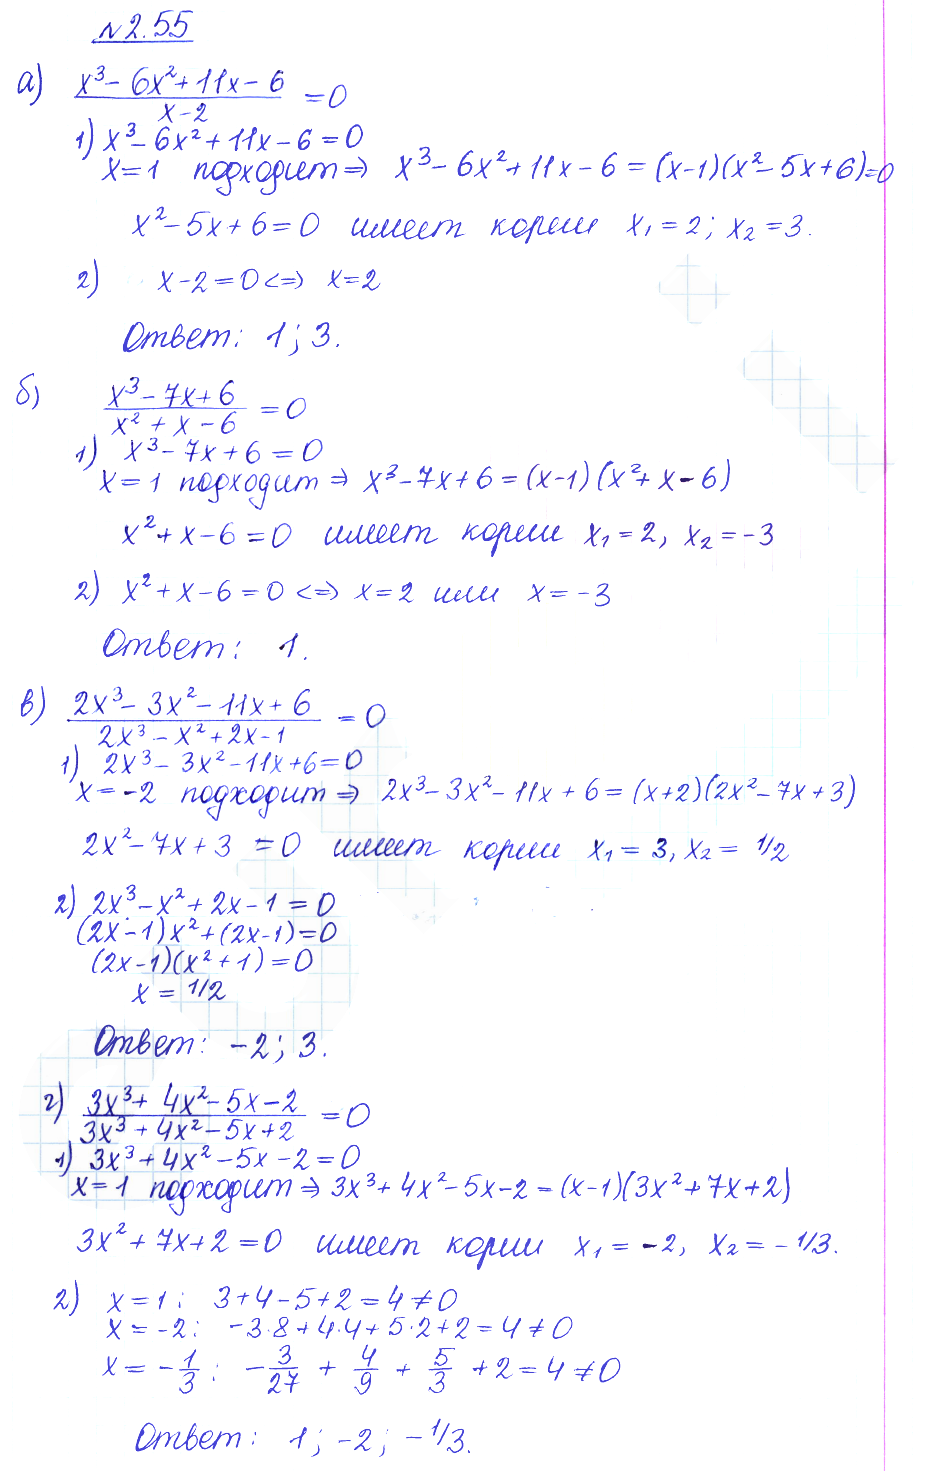 №2.55
а) (x³ − 6x² + 11x − 6)/(x − 2) = 0
1) x³ − 6x² + 11x − 6 = 0
x = 1 подходит ⇒ x³ − 6x² + 11x − 6 = (x−1)(x² − 5x + 6) = 0
x² − 5x + 6 = 0 имеет корни x₁ = 2; x₂ = 3.
2) x − 2 = 0 <=> x = 2
Ответ: 1; 3.
б) (x³ − 7x + 6)/(x² + x − 6) = 0
1) x³ − 7x + 6 = 0
x = 1 подходит ⇒ x³ − 7x + 6 = (x−1)(x² + x − 6)
x² + x − 6 = 0 имеет корни x₁ = 2, x₂ = −3
2) x² + x − 6 = 0 <=> x = 2 или x = −3
Ответ: 1.
в) (2x³ − 3x² − 11x + 6)/(2x³ − x² + 2x − 1) = 0
1) 2x³ − 3x² − 11x + 6 = 0
x = −2 подходит ⇒ 2x³ − 3x² − 11x + 6 = (x+2)(2x² − 7x + 3)
2x² − 7x + 3 = 0 имеет корни x₁ = 3, x₂ = 1/2
2) 2x³ − x² + 2x − 1 = 0
(2x − 1)x² + (2x − 1) = 0
(2x − 1)(x² + 1) = 0
x = 1/2
Ответ: −2; 3.
г) (3x³ + 4x² − 5x − 2)/(3x³ + 4x² − 5x + 2) = 0
1) 3x³ + 4x² − 5x − 2 = 0
x = 1 подходит ⇒ 3x³ + 4x² − 5x − 2 = (x−1)(3x² + 7x + 2)
3x² + 7x + 2 = 0 имеет корни x₁ = −2, x₂ = −1/3.
2) x = 1: 3 + 4 − 5 + 2 = 4 ≠ 0
x = −2: −3·8 + 4·4 + 5·2 + 2 = 4 ≠ 0
x = −1/3: −3/27 + 4/9 + 5/3 + 2 = 4 ≠ 0
Ответ: 1; −2; −1/3.